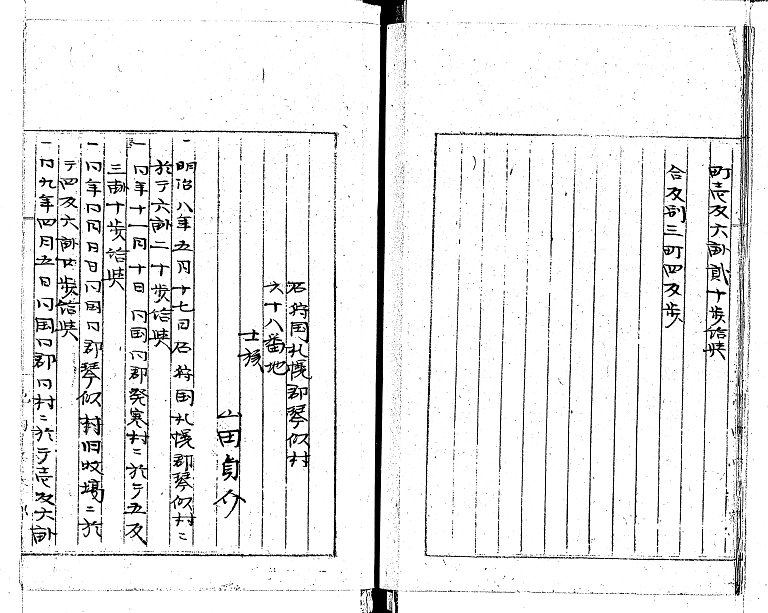 町壱反六畝貳十歩給與
合反別三町四反歩
石狩国札幌郡琴似村
六十八番地
士族
山田貞介
一明治八年五月十七日石狩国札幌郡琴似村ニ
於テ六畝二十歩給與
一同年十一月十日同国同郡発寒村ニ於テ五反
三畝十歩給與
一同年同月同日同国同郡琴似村旧牧場ニ於
テ四反六畝廿歩給與
一同九年四月五日同国同郡同村ニ於テ壱反六畝